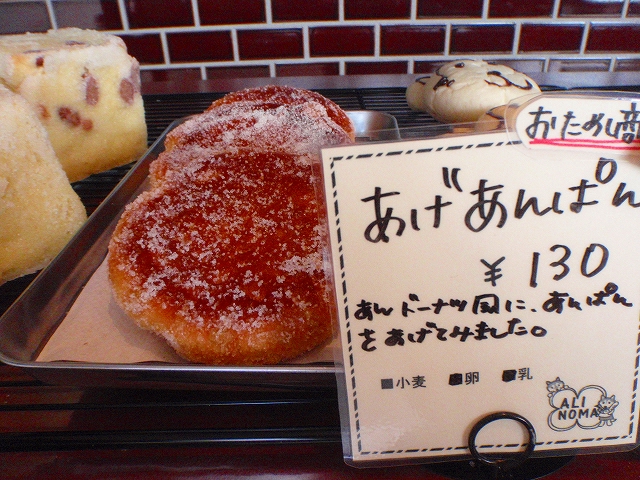 おためし商
あげあんぱん
¥130
あんドーナツ風に、あんぱん
をあげてみました。
■小麦 ■卵 ■乳
ALI
NOMA